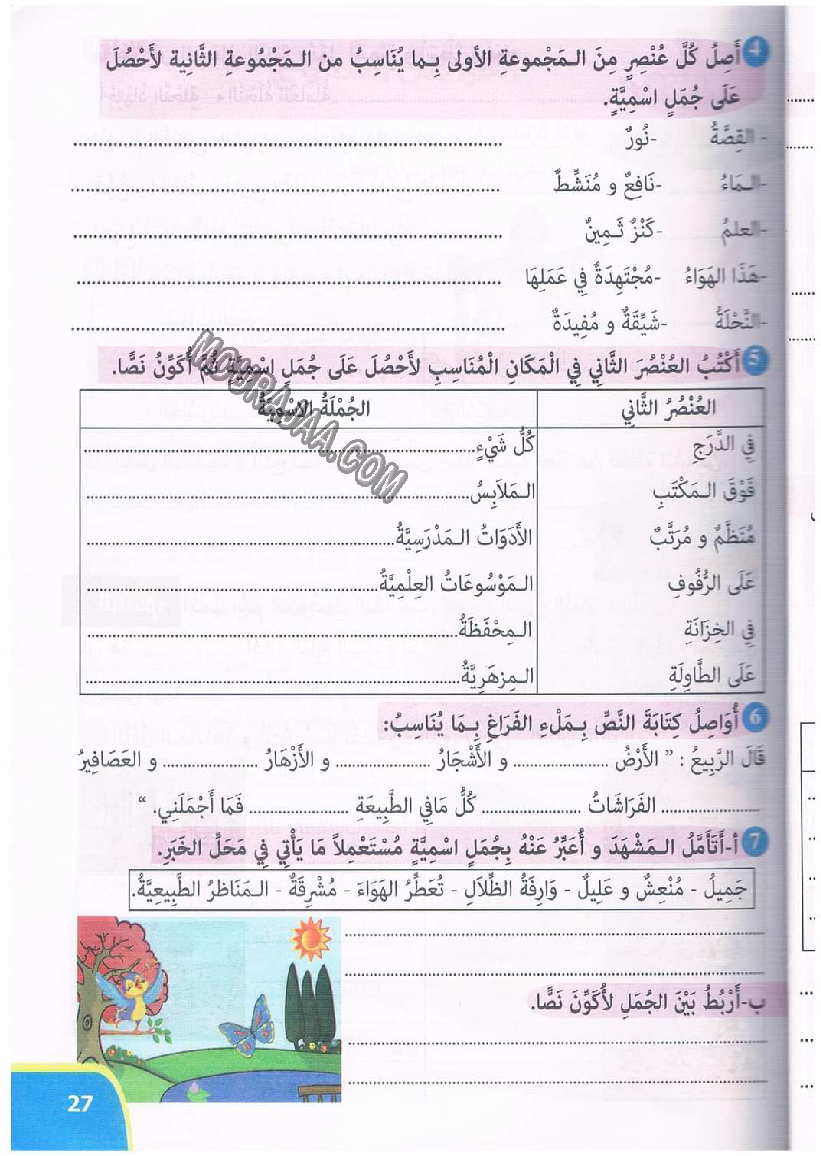 4 أَصِلُ كُلَّ عُنْصِرٍ مِنَ الـمَجْموعةِ الأولى بِـما يُنَاسِبُ من الـمَجْمُوعةِ الثَّانِية لأَحْصُلَ
عَلَى جُمَلٍ اسْمِيَّةٍ.
- القِصَّةُ -نُورٌ ........................
-الـماءُ -نَافِعٌ و مُنَشِّطٌ ........................
-العلمُ -كَنْزٌ ثَـمِينٌ ........................
-هَذَا الهَوَاءُ -مُجْتَهِدَةٌ فِي عَمَلِهَا ........................
-النَّحْلَةُ -شَيِّقَةٌ و مُفِيدَةٌ ........................
5 أَكْتُبُ العُنْصُرَ الثَّانِي فِي الْمَكَانِ الْمُنَاسِبِ لأَحْصُلَ عَلَى جُمَلٍ اسْمِيَّةٍ ثُمَّ أُكَوِّنُ نَصًّا.
MOURAJAA.COM
العُنْصُرُ الثَّانِي الجُمْلَةُ الاسْمِيَّةُ
فِي الدَّرَجِ كُلُّ شَيْءٍ........................
فَوْقَ الـمَكْتَبِ الـمَلاَبِسُ........................
مُنَظَّمٌ و مُرَتَّبٌ الأَدَوَاتُ الـمَدْرَسِيَّةُ........................
عَلَى الرُّفُوفِ الـمَوْسُوعَاتُ العِلْمِيَّةُ........................
فِي الخِزَانَةِ الـمِحْفَظَةُ........................
عَلَى الطَّاوِلَةِ الـمِزهَرِيَّةُ........................
6 أُوَاصِلُ كِتَابَةَ النَّصِّ بِـمَلْءِ الفَرَاغِ بِـمَا يُنَاسِبُ:
قَالَ الرَّبِيعُ : " الأَرْضُ .................... و الأَشْجَارُ .................... و الأَزْهَارُ .................... و العَصَافِيرُ
.................... الفَرَاشَاتُ .................... كُلُّ مَافِي الطَّبِيعَةِ .................... فَمَا أَجْمَلَنِي. "
7 أ-أَتَأَمَّلُ الـمَشْهَدَ و أُعَبِّرُ عَنْهُ بِجُمَلٍ اسْمِيَّةٍ مُسْتَعْمِلاً مَا يَأْتِي فِي مَحَلِّ الخَبَرِ.
جَمِيلُ - مُنْعِشٌ و عَلِيلٌ - وَارِفَةُ الظِّلاَلِ - تُعَطِّرُ الهَوَاءَ - مُشْرِقَةٌ - الـمَنَاظرُ الطَّبِيعِيَّةُ.
........................
........................
ب-أَرْبُطُ بَيْنَ الجُمَلِ لأُكَوِّنَ نَصًّا.
........................
........................
27